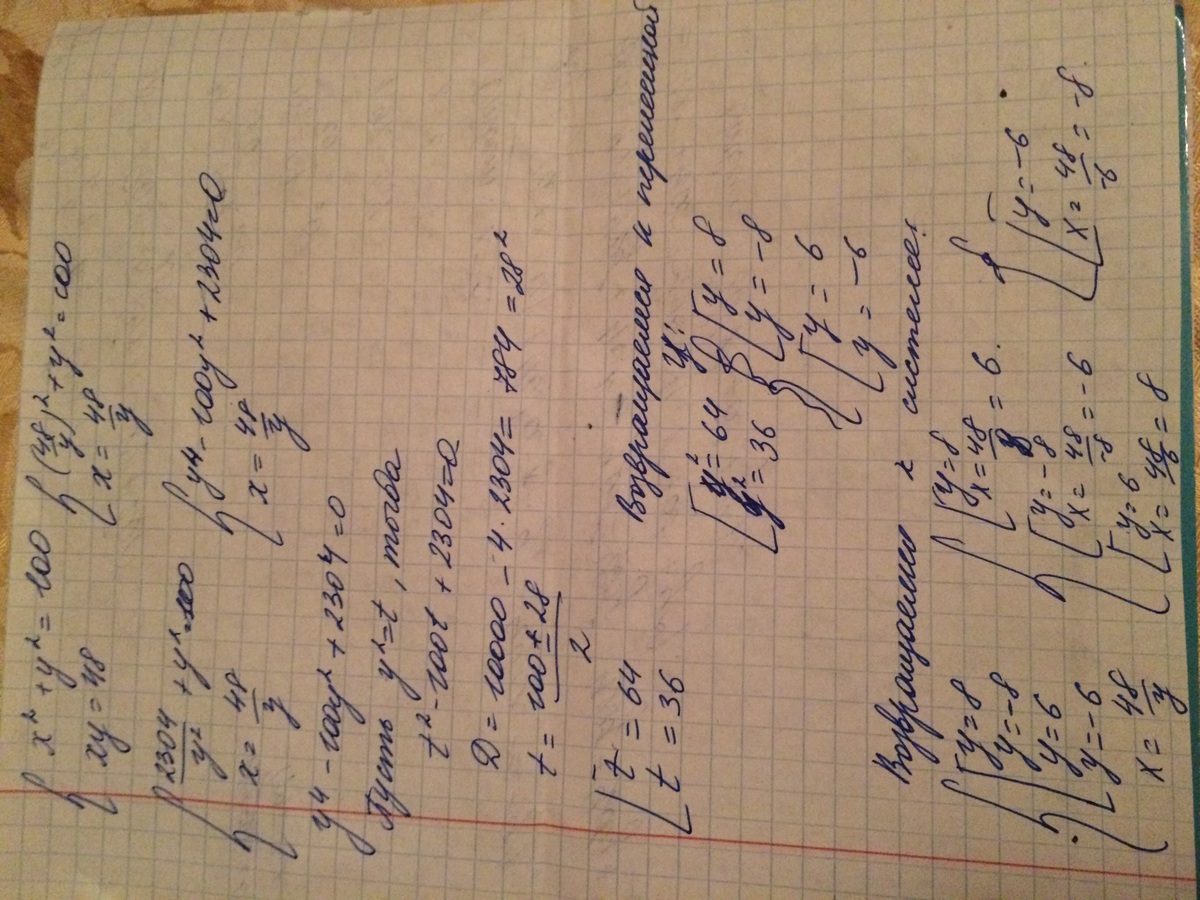 { x² + y² = 100 { (48/y)² + y² = 100
xy = 48 x = 48/y
{ 2304/y² + y² = 100 { y⁴ - 100y² + 2304 = 0
x = 48/y x = 48/y
y⁴ - 100y² + 2304 = 0
Пусть y² = t, тогда
t² - 100t + 2304 = 0
D = 10000 - 4 · 2304 = 784 = 28²
t = (100 ± 28)/2
[ t = 64
t = 36
Возвращаемся к переменной
y:
[ y² = 64
y² = 36
{ [ y = 8
y = -8
{ [ y = 6
y = -6
Возвращаемся к системе:
{ [ y = 8
y = -8
y = 6
y = -6
x = 48/y
{ [ y = 8
x = 48/8 = 6.
{ [ y = -8
x = 48/-8 = -6
[ y = 6
x = 48/6 = 8
{ [ y = -6
x = 48/-6 = -8.